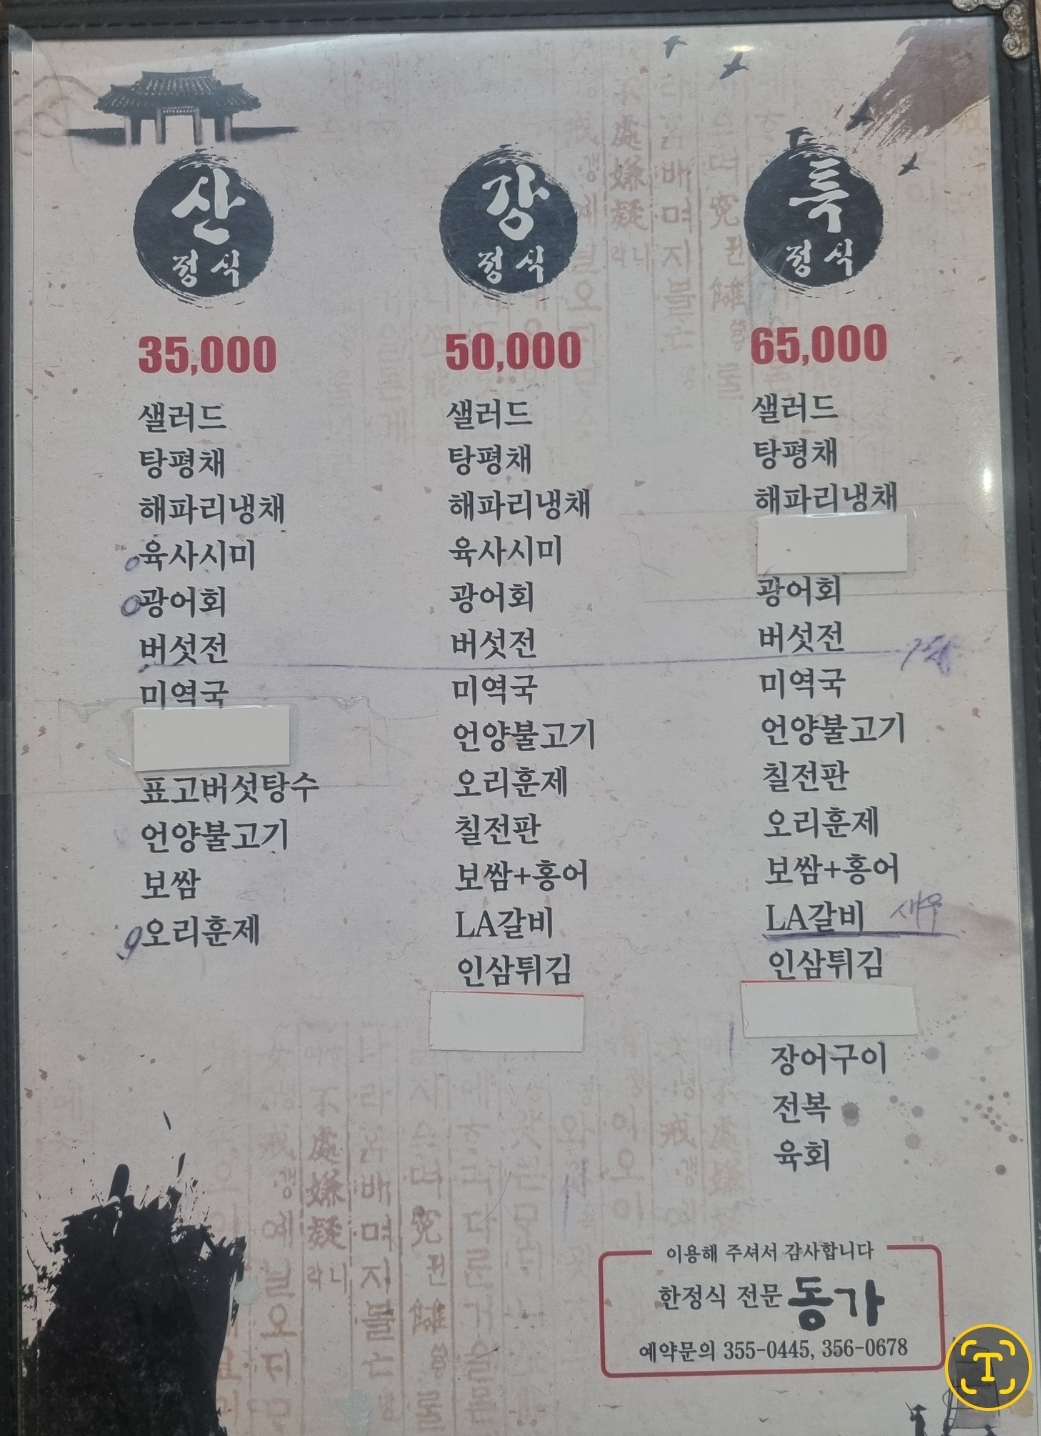 산
정식
35,000
샐러드
탕평채
해파리냉채
육사시미
광어회
버섯전
미역국
표고버섯탕수
언양불고기
보쌈
오리훈제
강
정식
50,000
샐러드
탕평채
해파리냉채
육사시미
광어회
버섯전
미역국
언양불고기
오리훈제
칠전판
보쌈+홍어
LA갈비
인삼튀김
특
정식
65,000
샐러드
탕평채
해파리냉채
광어회
버섯전
미역국
언양불고기
칠전판
오리훈제
보쌈+홍어
LA갈비 새우
인삼튀김
장어구이
전복
육회
이용해 주셔서 감사합니다
한정식 전문 동가
예약문의 355-0445, 356-0678